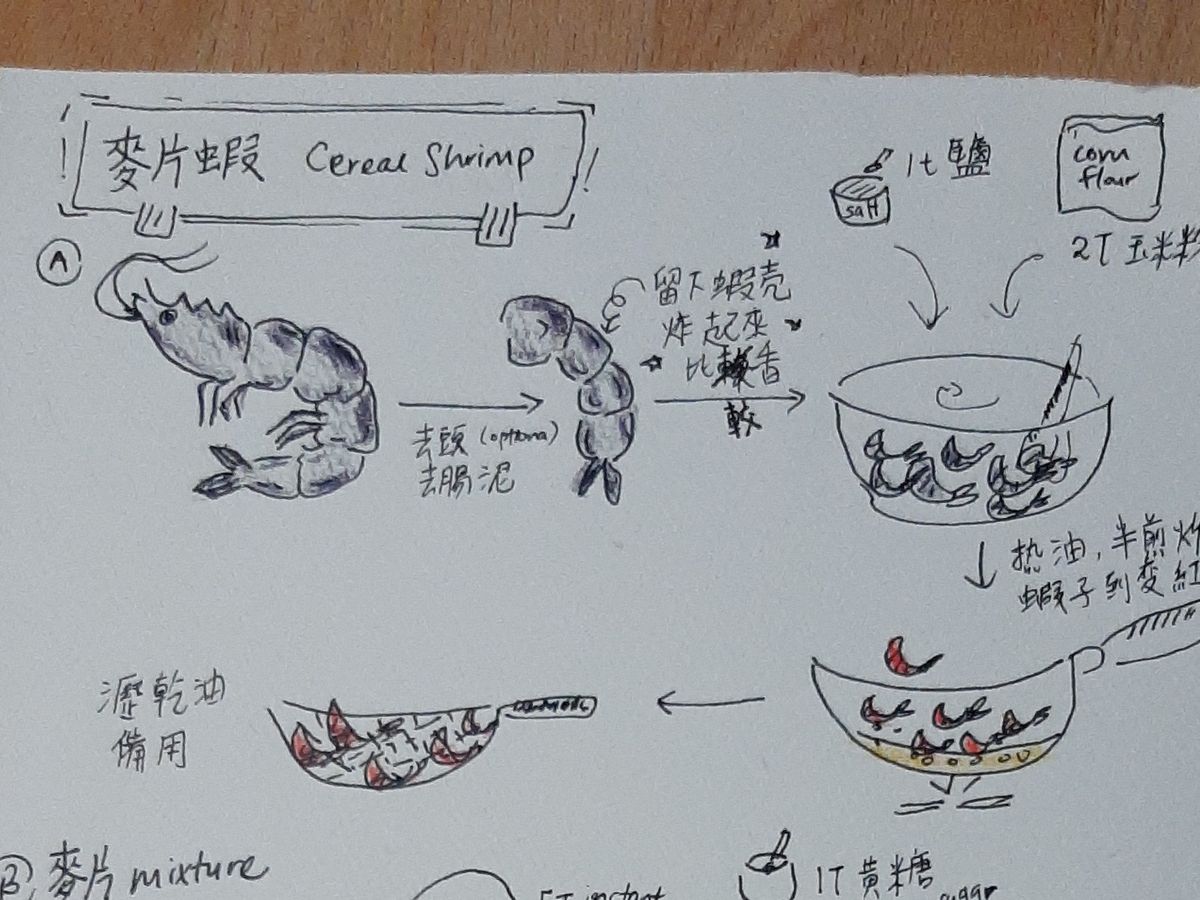 麥片蝦 Cereal Shrimp
A
1t 鹽
salt
corn
flour
2T 玉米粉
留下蝦壳
炸起來
比較香
較
去頭 (optional)
去腸泥
热油，半煎炸
蝦子到变紅
瀝乾油
備用
B 麥片 mixture
5T instant
1T 黄糖
sugar